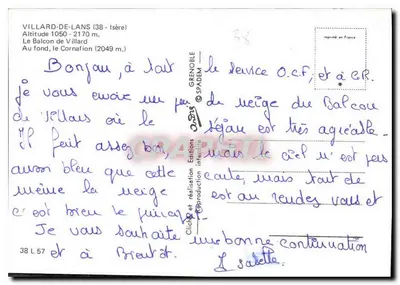 VILLARD-DE-LANS (38 - Isère)
Altitude 1050 - 2170 m,
Le Balcon de Villard
Au fond, le Cornafion (2049 m,)
38
imprimé en France
Bonjour, à tout le service O.C.F, et à G.R.
je vous envoie un peu de neige du Balcon
de Villars où le séjour est très agréable.
Il fait assez bon, mais le ciel n'est pas
aussi bleu que cette carte, mais tout de
même la neige est au rendez vous et
c'est bien le principal.
Je vous souhaite une bonne continuation
et à Bientôt. Isabelle.
Clichés et réalisation Editions
Reproduction interdite
GRENOBLE
© SPADEM
38 L 57